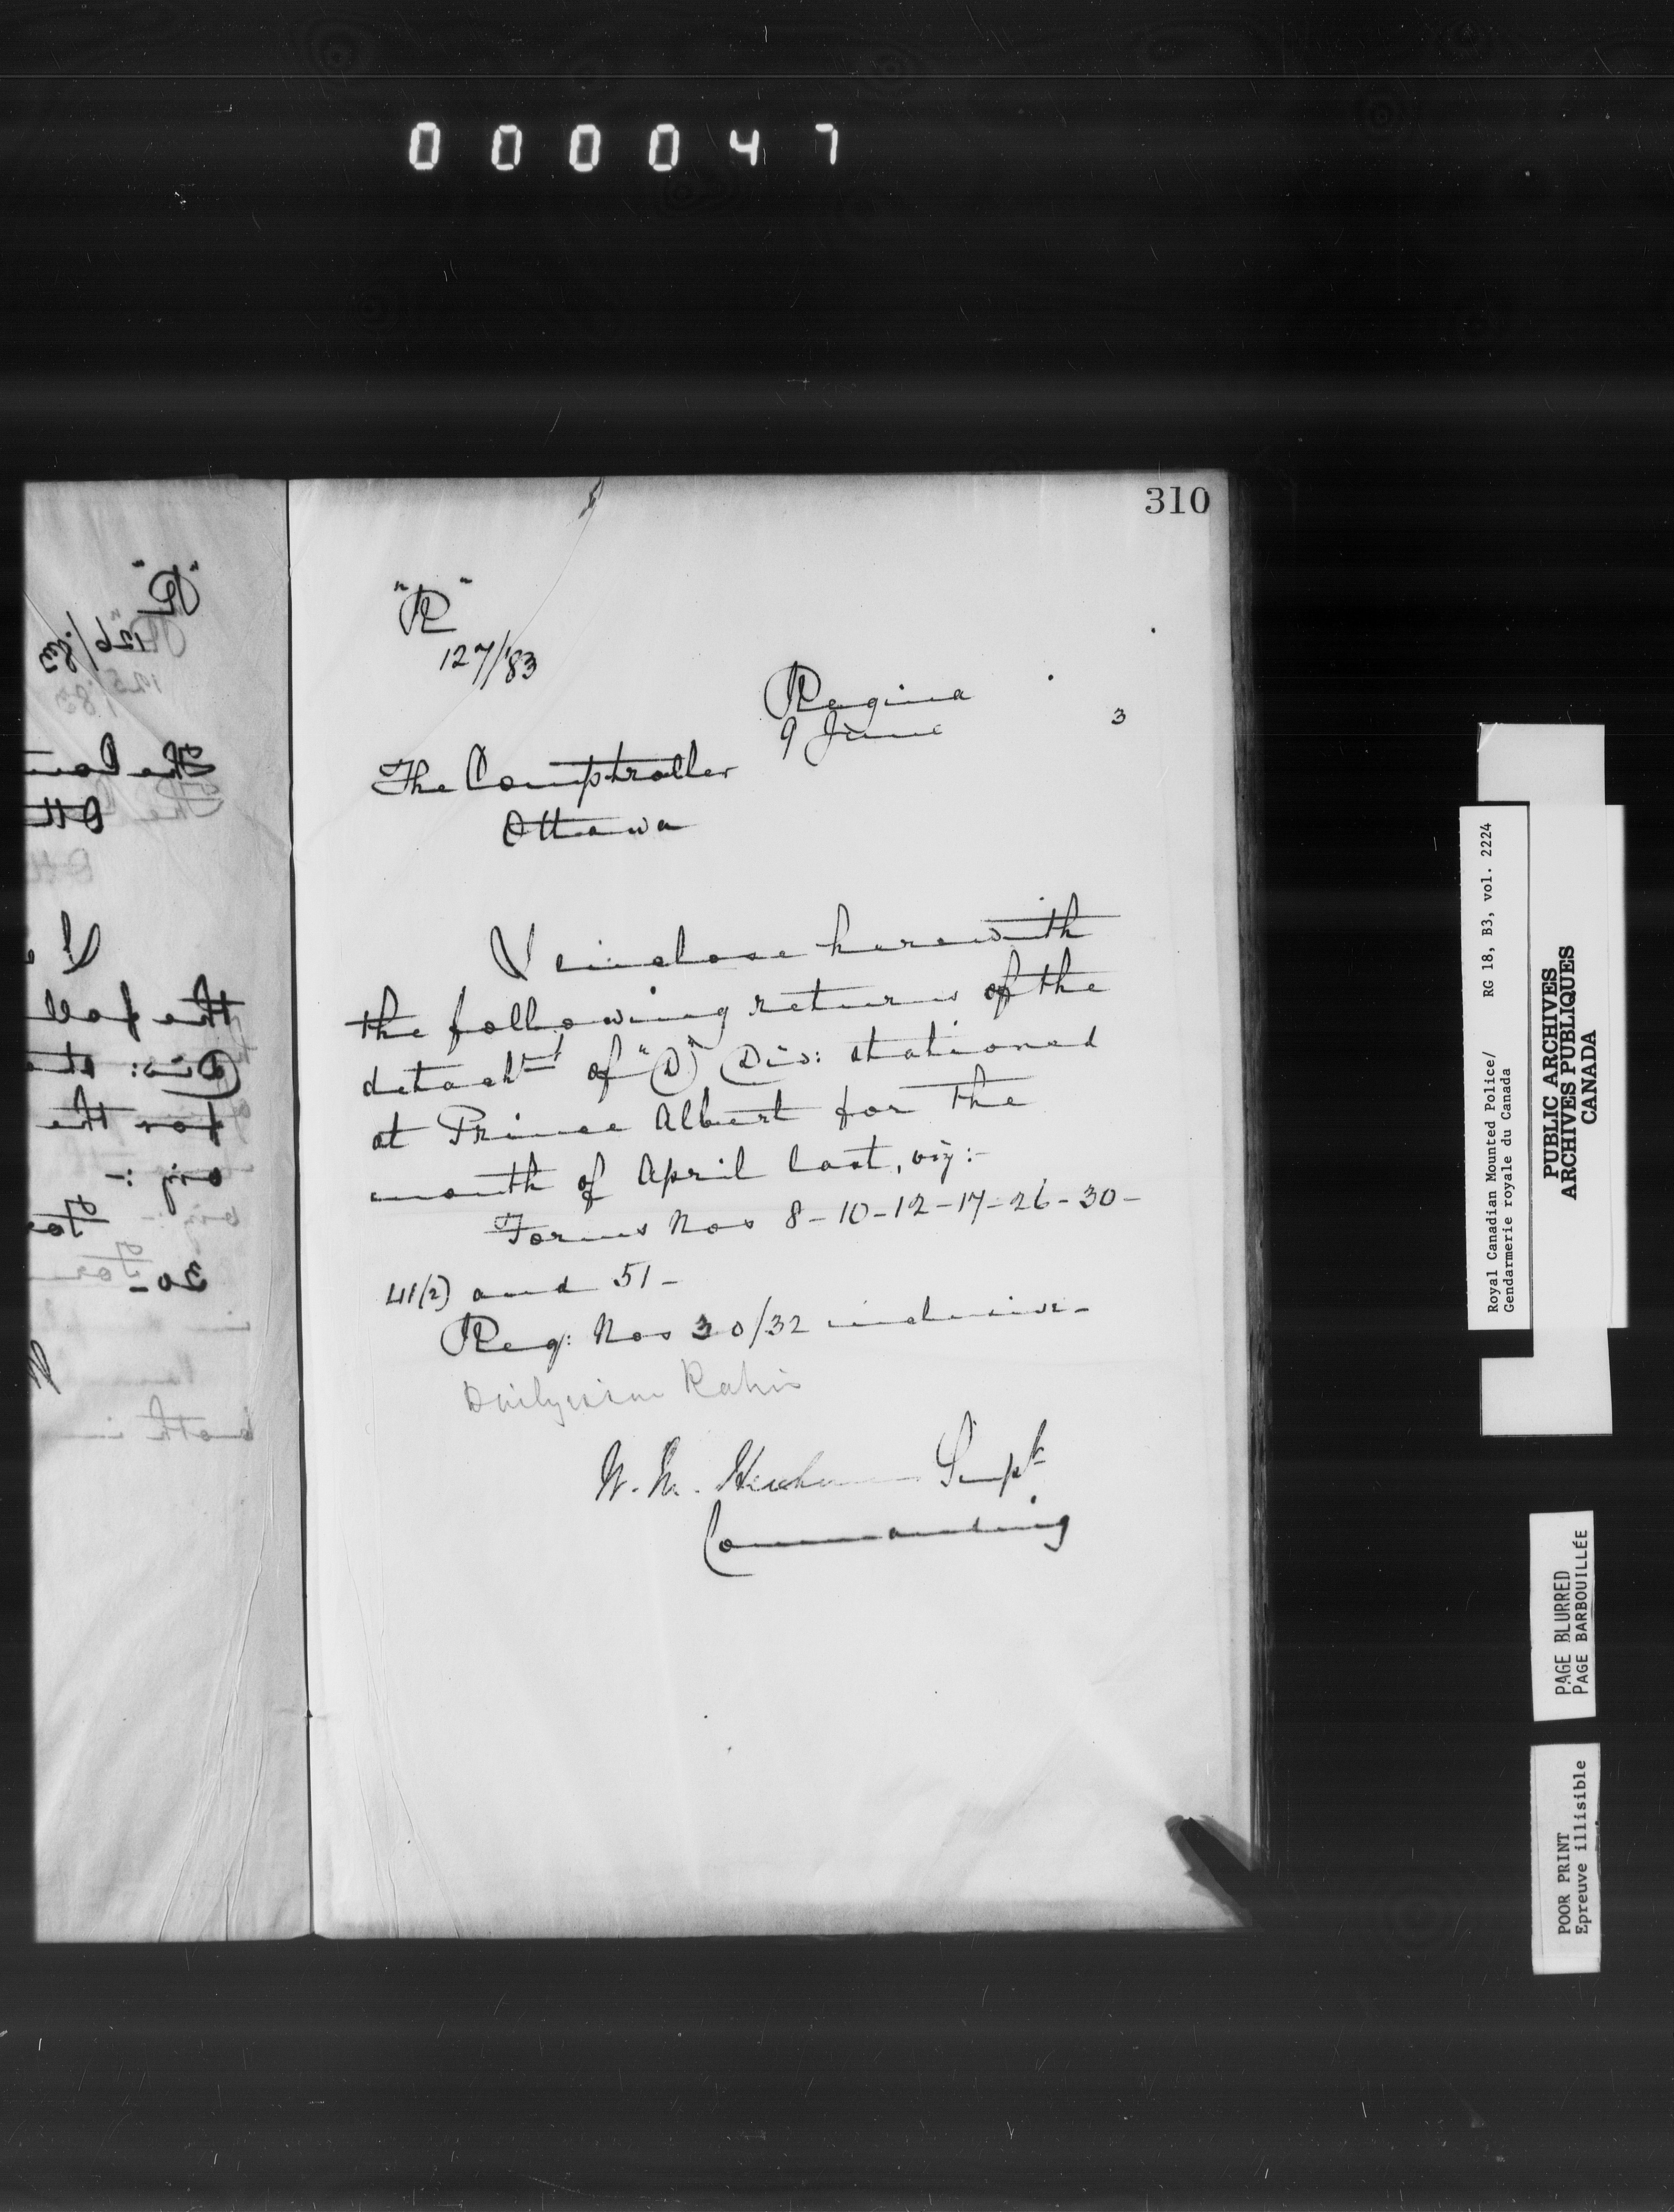 000047
310
"R"
127/83
Regina
9 June 3
The Comptroller
Ottawa
I enclose herewith
the following returns of the
detachmt of "D" Div: stationed
at Prince Albert for the
month of April last, viz:-
Forms Nos 8-10-12-17-26-30-
41(2) and 51-
Req: Nos 30/32 inclusive-
W. M. Supt
Commanding
"R"
126/83
125/83
Royal Canadian Mounted Police/ RG 18, B3, vol. 2224
Gendarmerie royale du Canada
PUBLIC ARCHIVES
ARCHIVES PUBLIQUES
CANADA
PAGE BLURRED
PAGE BARBOUILLÉE
POOR PRINT
Epreuve illisible